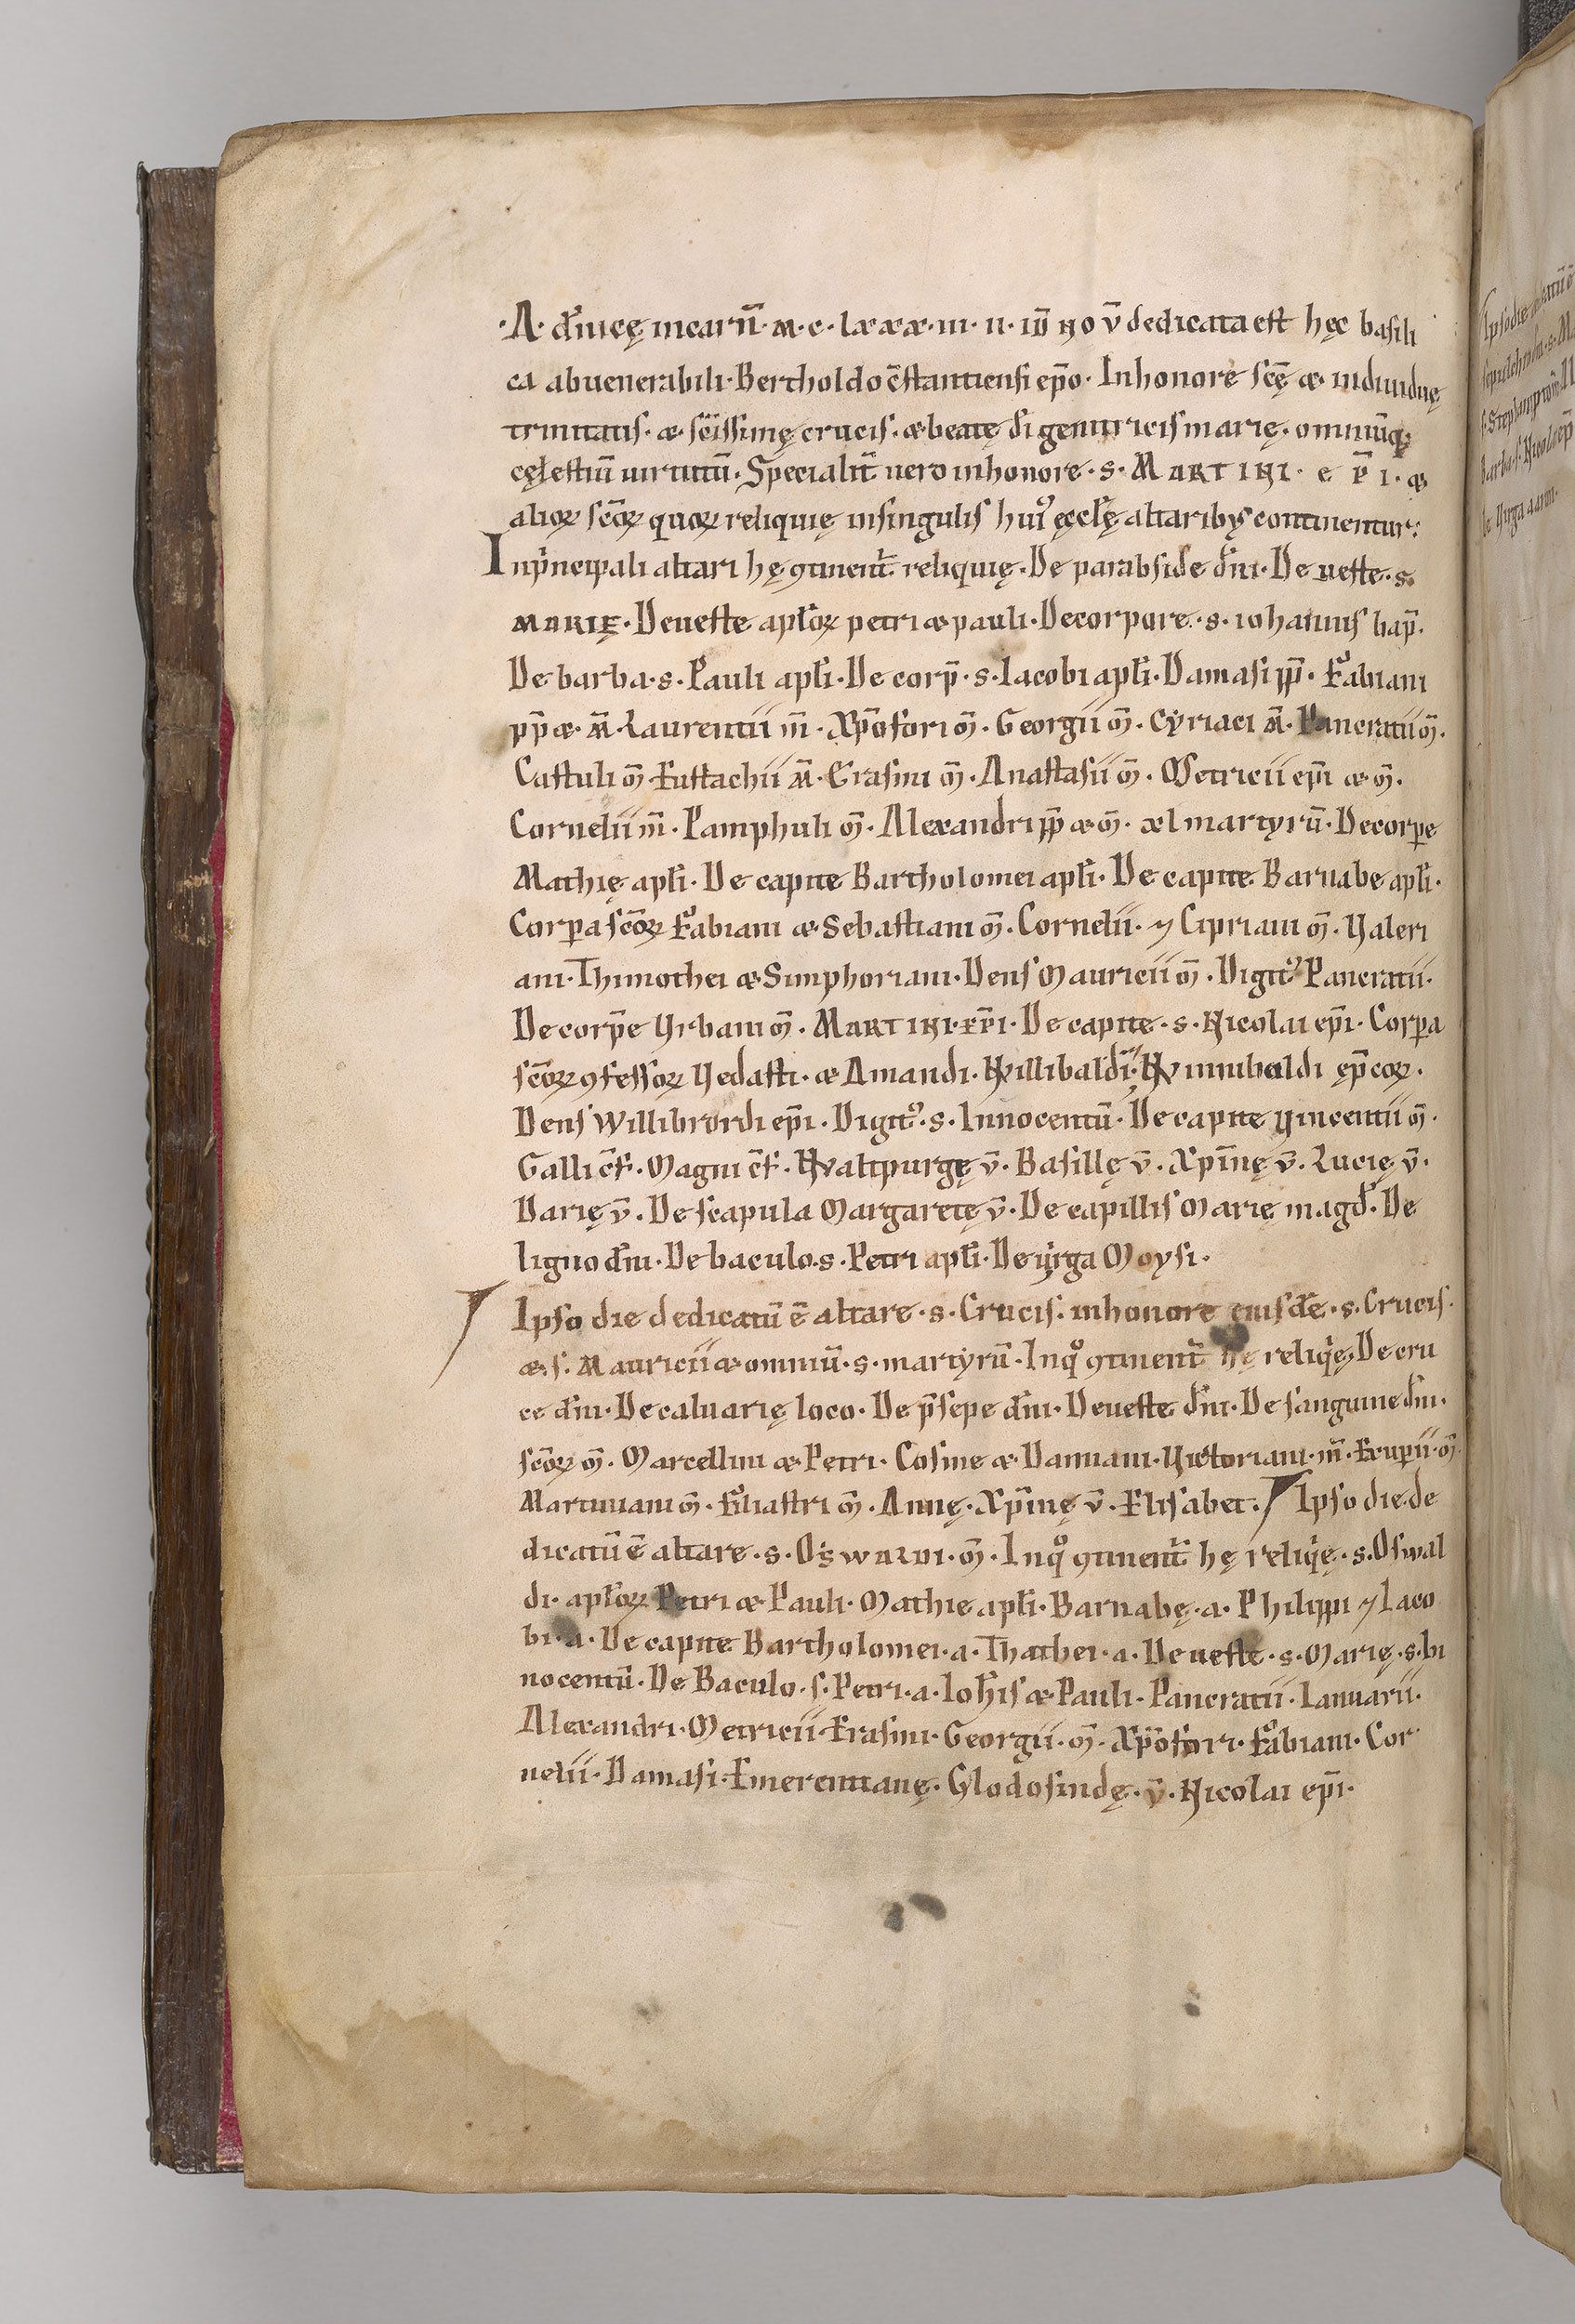 ·A· dn̄icę incarn̄·M·C·lxxx·iii·ii·id̄ Nov̄ dedicata est hęc basili
ca a uenerabili·Bertholdo c̄stantiensi ep̄o·In honore scę̄ & indiuiduę
trinitatis·& sc̄issimę crucis·& beatę d̄i genitricis marię·omniūq;
cęlestiū uirtutū·Specialit̄ uero in honore·s·MARTINI·EP̄I·&
alioꝝ sc̄oꝝ quoꝝ reliquię in singulis hui᾽ ęccl̄ę altaribus continentur:
In p̄ncipali altari hę ꝯtinent̄ reliquię·De parabside dn̄i·De ueste·s·
MARIĘ·De ueste apl̄oꝝ petri & pauli·De corpore·s·iohannis bap̄·
De barba·s·Pauli apl̄i·De corp̄·s·Iacobi apl̄i·Damasi pp̄·Fabiani
pp̄ &·m̄·Laurentii m̄·Xp̄ofori m̄·Georgii m̄·Cẏriaci m̄·Pancratii m̄·
Castuli m̄ Eustachii m̄·Erasmi m̄·Anastasii m̄·Metricii ep̄i & m̄·
Cornelii m̄·Pamphuli m̄·Alexandri pp̄ & m̄·&l martyrū·De corpe
Mathię apl̄i·De capite Bartholomei apl̄i·De capite Barnabe apl̄i·
Corpa sc̄oꝝ Fabiani & Sebastiani m̄·Cornelii·⁊ Cipriani m̄·Valeri
ani·Thimothei & Simphoriani·Dens Mauricii m̄·Digit᾽ Pancratii·
De corpe Vrbani m̄·MARTINI·EP̄I·De capite·s·Nicolai ep̄i·Corpa
sc̄oꝝ ꝯfessoꝝ Vedasti·& Amandi·Willibaldi·Wunnibaldi ęp̄coꝝ·
Dens Willibrordi ep̄i·Digit᾽·s·Innocentū·De capite Vincentii m̄·
Galli c̄f·Magni c̄f·Waltpurgę v̄·Basillę v̄·Xp̄inę v̄·Lucię v̄·
Darię v̄·De scapula Margaretę v̄·De capillis Marię magd̄·De
ligno dn̄i·De baculo·s·Petri apl̄i·De uirga Moysi·
Ipso die dedicatū ē altare·s·Crucis·in honore eiusdē·s·Crucis·
&·s·Mauricii & omniū·s·martẏrū·In qͦ ꝯtinent̄ hę reliqͥę·De cru
ce dn̄i·De caluarię loco·De p̄sepe dn̄i·De ueste dn̄i·De sanguine dn̄i·
sc̄oꝝ m̄·Marcellini & Petri·Cosme & Damiani·Victoriani·m̄·Exuperii·m̄·
Martiniani m̄·Foliastri m̄·Annę·Xp̄inę v̄·Elisabet·Ipso die de
dicatū ē altare·s·OSWALDI·m̄·In qͦ ꝯtinent̄ hę reliqͥę·s·Oswal
di·apl̄oꝝ Petri & Pauli·Mathie apl̄i·Barnabę·a·Philippi ⁊ Iaco
bi·a·De capite Bartholomei·a·Thathei·a·De ueste·s·Marię·s·In
nocentū·De Baculo·s·Petri·a·Ioh̄is & Pauli·Pancratii·Ianuarii·
Alexandri·Metricii·Erasmi·Georgii·m̄·Xp̄ofori·Fabiani·Cor
nelii·Damasi·Emerentianę·Glodosindę·v̄·Nicolai ep̄i·